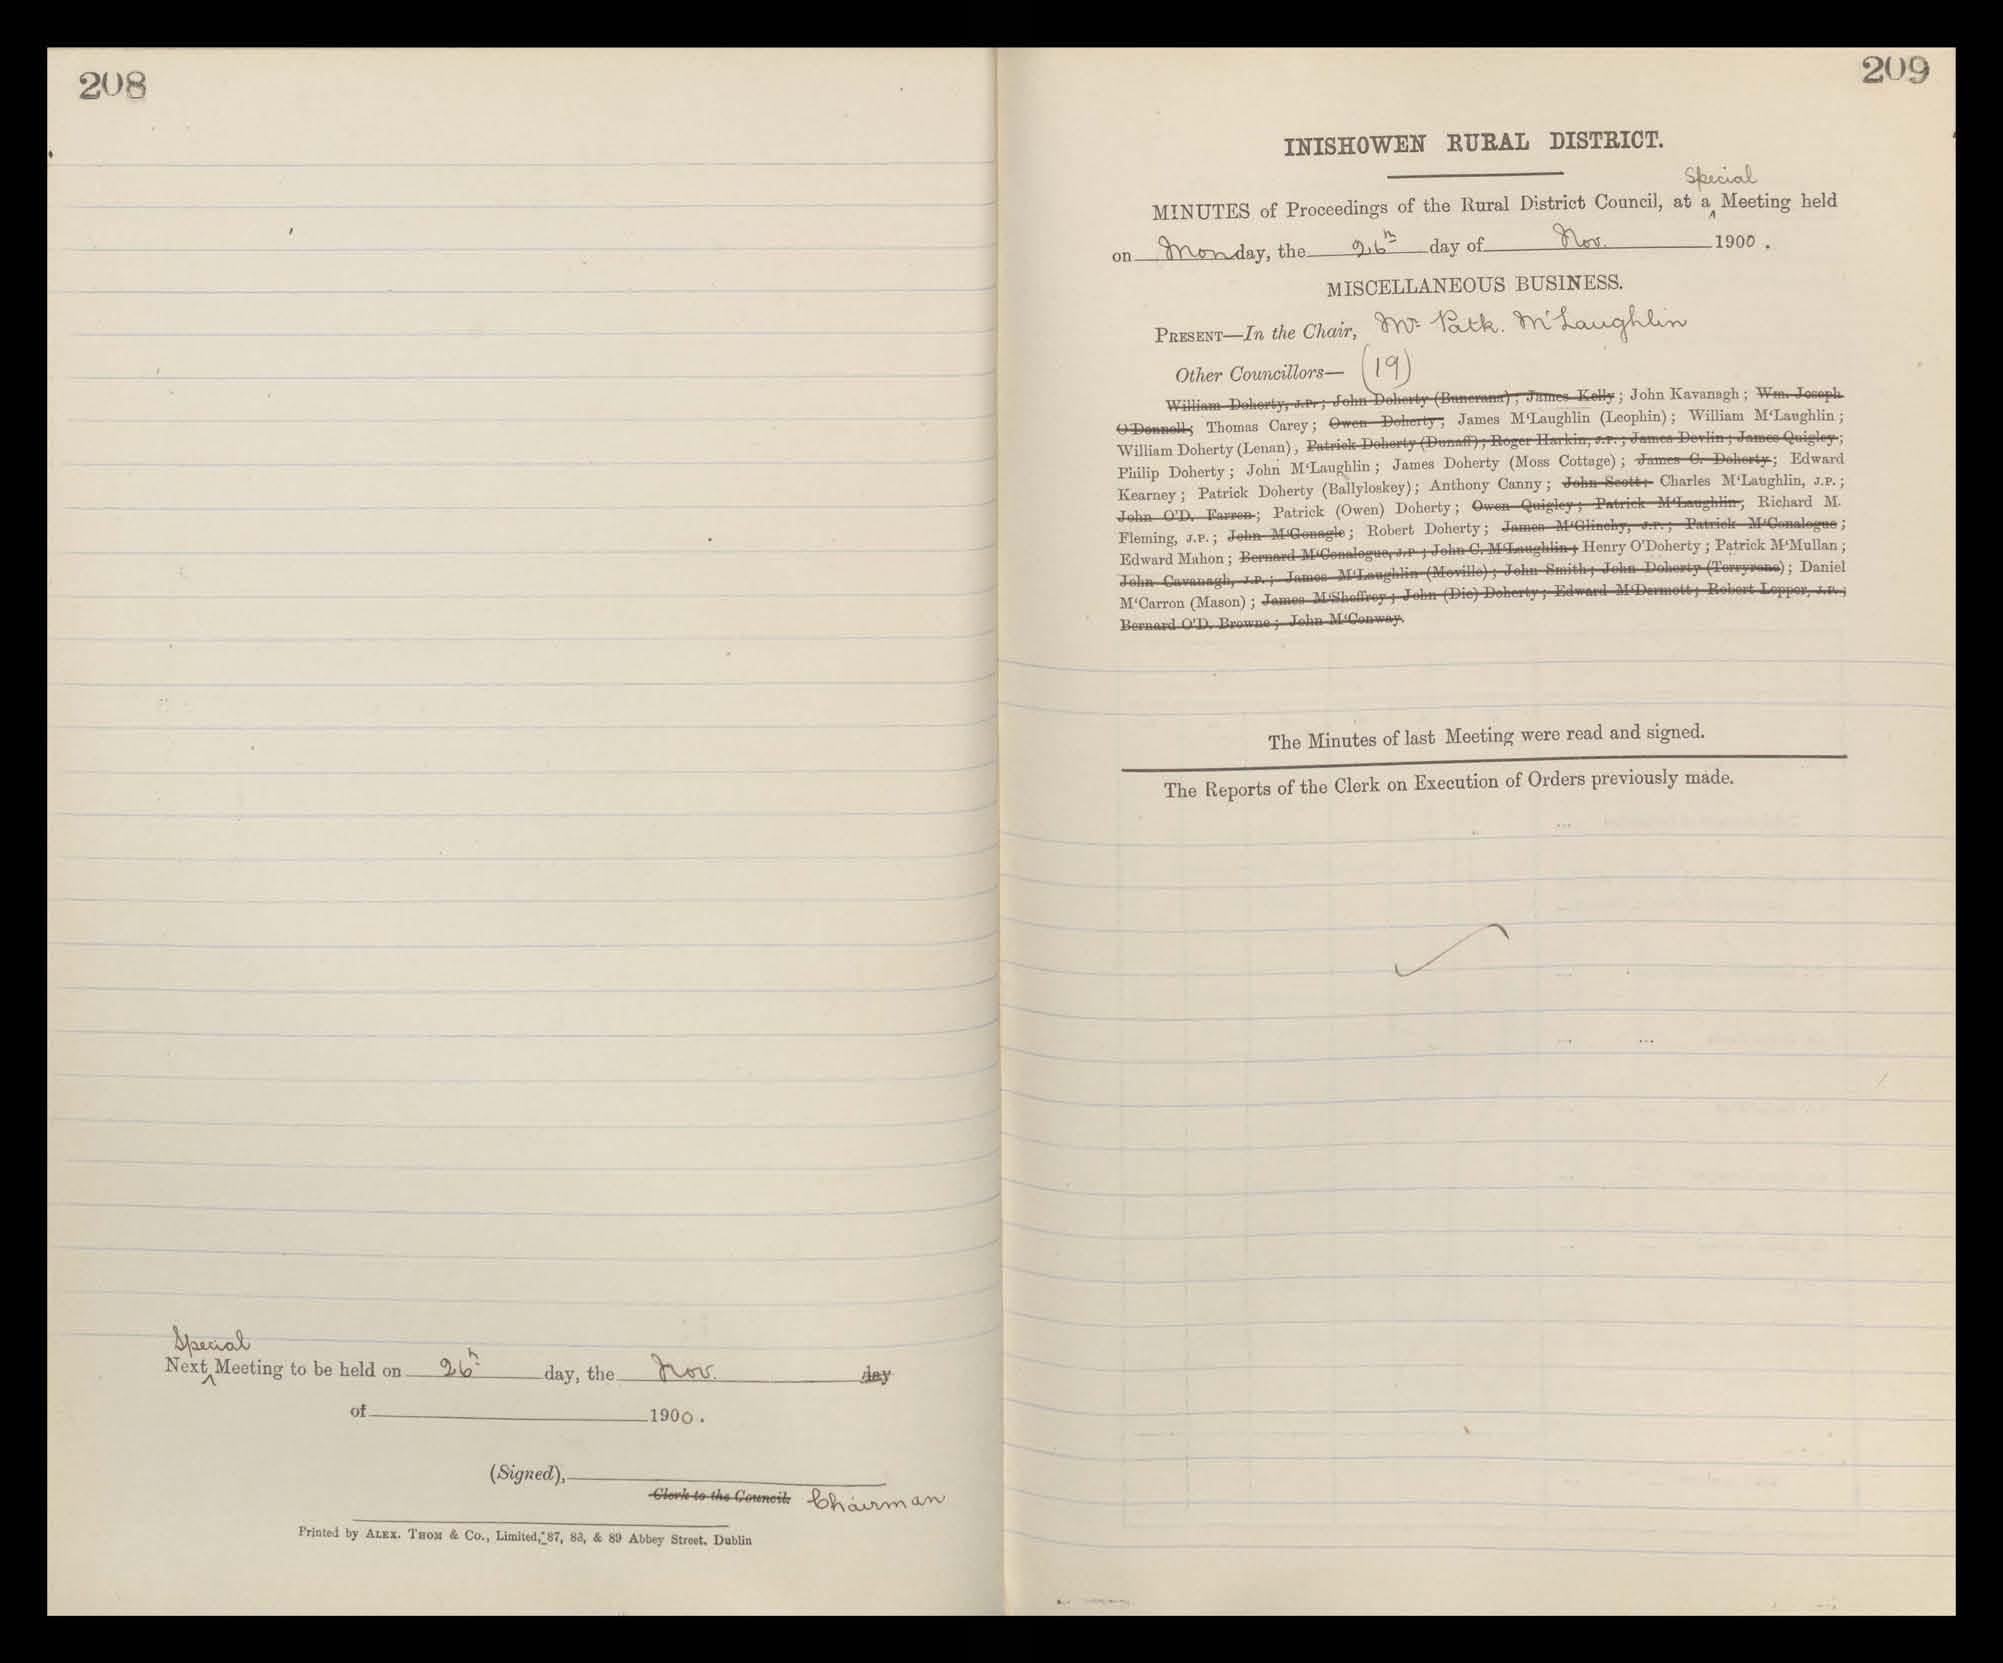 208
Special
Next ‸ Meeting to be held on 26th day, the Nov. day
of 1900.
(Signed),
Clerk to the Council. Chairman
Printed by ALEX. THOM & Co., Limited, 87, 88, & 89 Abbey Street. Dublin
209
INISHOWEN RURAL DISTRICT.
Special
MINUTES of Proceedings of the Rural District Council, at a ‸ Meeting held
on Monday, the 26th day of Nov. 1900.
MISCELLANEOUS BUSINESS.
PRESENT—In the Chair, Mr. Patk. McLaughlin
Other Councillors— (19)
William Doherty, J.P.; John Doherty (Buncrana); James Kelly; John Kavanagh; Wm. Joseph
O'Donnell; Thomas Carey; Owen Doherty; James M'Laughlin (Leophin); William M'Laughlin;
William Doherty (Lenan), Patrick Doherty (Dunaff); Roger Harkin, J.P.; James Devlin; James Quigley;
Philip Doherty; John M'Laughlin; James Doherty (Moss Cottage); James C. Doherty; Edward
Kearney; Patrick Doherty (Ballyloskey); Anthony Canny; John Scott; Charles M'Laughlin, J.P.;
John O'D. Farren; Patrick (Owen) Doherty; Owen Quigley; Patrick M'Laughlin; Richard M.
Fleming, J.P.; John M'Gonagle; Robert Doherty; James M'Glinchy, J.P.; Patrick M'Conalogue;
Edward Mahon; Bernard M'Conalogue, J.P.; John C. M'Laughlin; Henry O'Doherty; Patrick M'Mullan;
John Cavanagh, J.P.; James M'Laughlin (Moville); John Smith; John Doherty (Terryrone); Daniel
M'Carron (Mason); James M'Sheffrey; John (Die) Doherty; Edward M'Dermott; Robert Lepper, J.P.;
Bernard O'D. Browne; John M'Conway.
The Minutes of last Meeting were read and signed.
The Reports of the Clerk on Execution of Orders previously made.